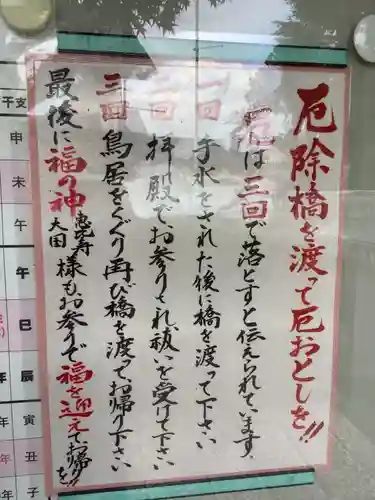 厄除橋を渡って厄おとしを!!
厄は三回で落とすと伝えられています。
一回 手水をされた後に橋を渡って下さい
二回 拝殿でお参りされ、祓いを受けて下さい
三回 鳥居をくぐり再び橋を渡ってお帰り下さい
最後に福の神 恵比寿 大国 様もお参りで福を迎えてお帰りを!!
干支
申
未
午
午
巳
辰
寅
丑
子